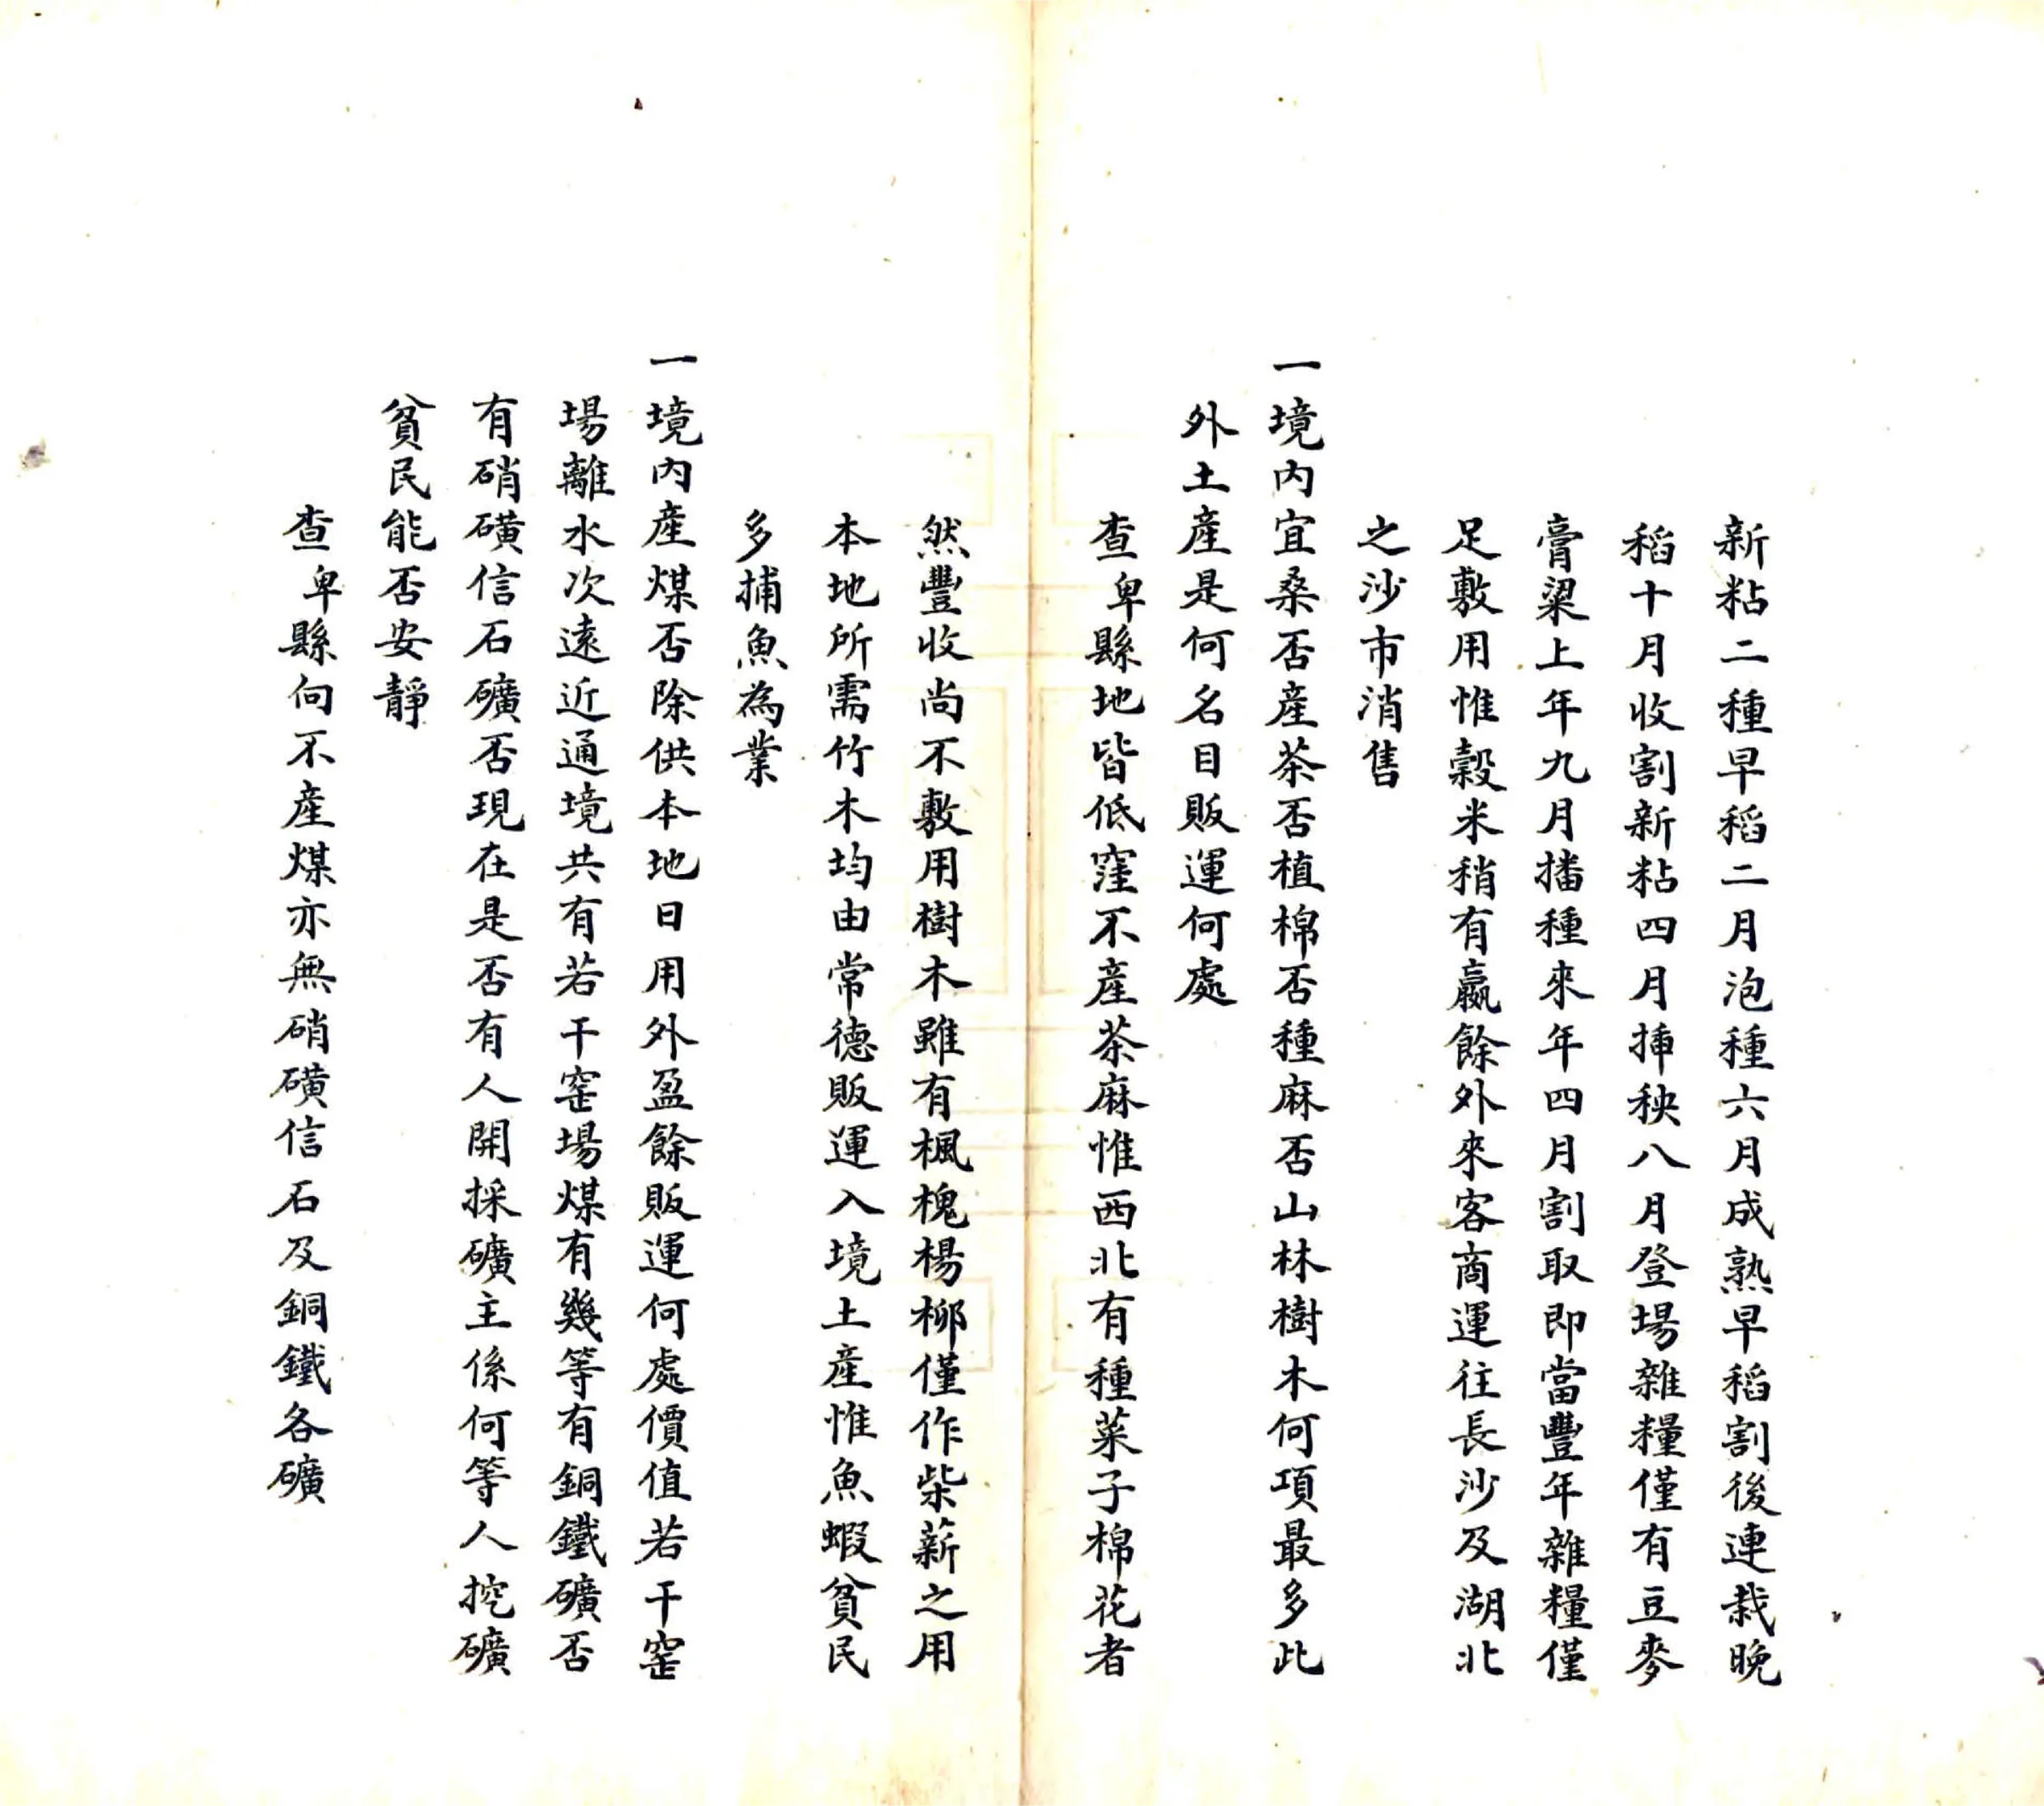 新粘二種早稻二月泡種六月成熟早稻割後連栽晚
稻十月收割新粘四月揷秧八月登場雜糧僅有豆麥
膏粱上年九月播種來年四月割取即當豐年雜糧僅
足敷用惟穀米稍有贏餘外來客商運往長沙及湖北
之沙市消售
一境内宜桑否產茶否植棉否種麻否山林樹木何項最多此
外土產是何名目販運何處
查卑縣地皆低窪不產茶麻惟西北有種菜子棉花者
然豐收尚不敷用樹木雖有楓槐楊柳僅作柴薪之用
本地所需竹木均由常德販運入境土產惟魚蝦貧民
多捕魚為業
一境内產煤否除供本地日用外盈餘販運何處價值若干窑
場離水次遠近通境共有若干窑場煤有幾等有銅鐵礦否
有硝磺信石礦否現在是否有人開採礦主係何等人挖礦
貧民能否安靜
查卑縣向不產煤亦無硝磺信石及銅鐵各礦